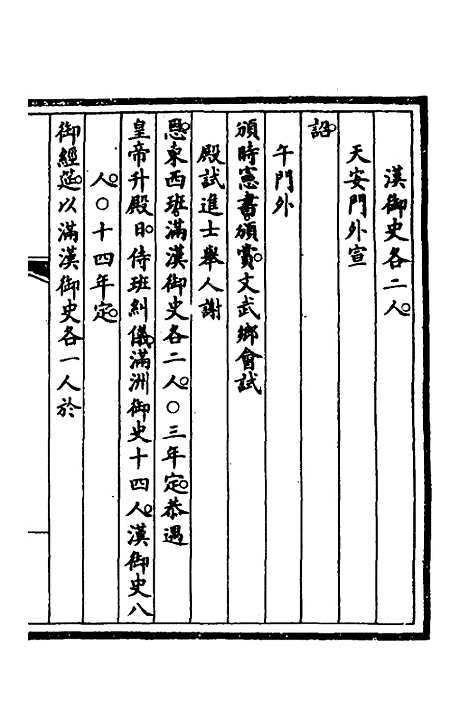 漢御史各二人。
天安門外宣
詔。
午門外
頒時憲書。頒賞。文武鄉會試
殿試進士舉人謝
恩。東西班滿漢御史各二人。○三年定。恭遇
皇帝升殿日。侍班糾儀。滿洲御史十四人。漢御史八
人。○十四年定。
御經筵。以滿漢御史各一人於